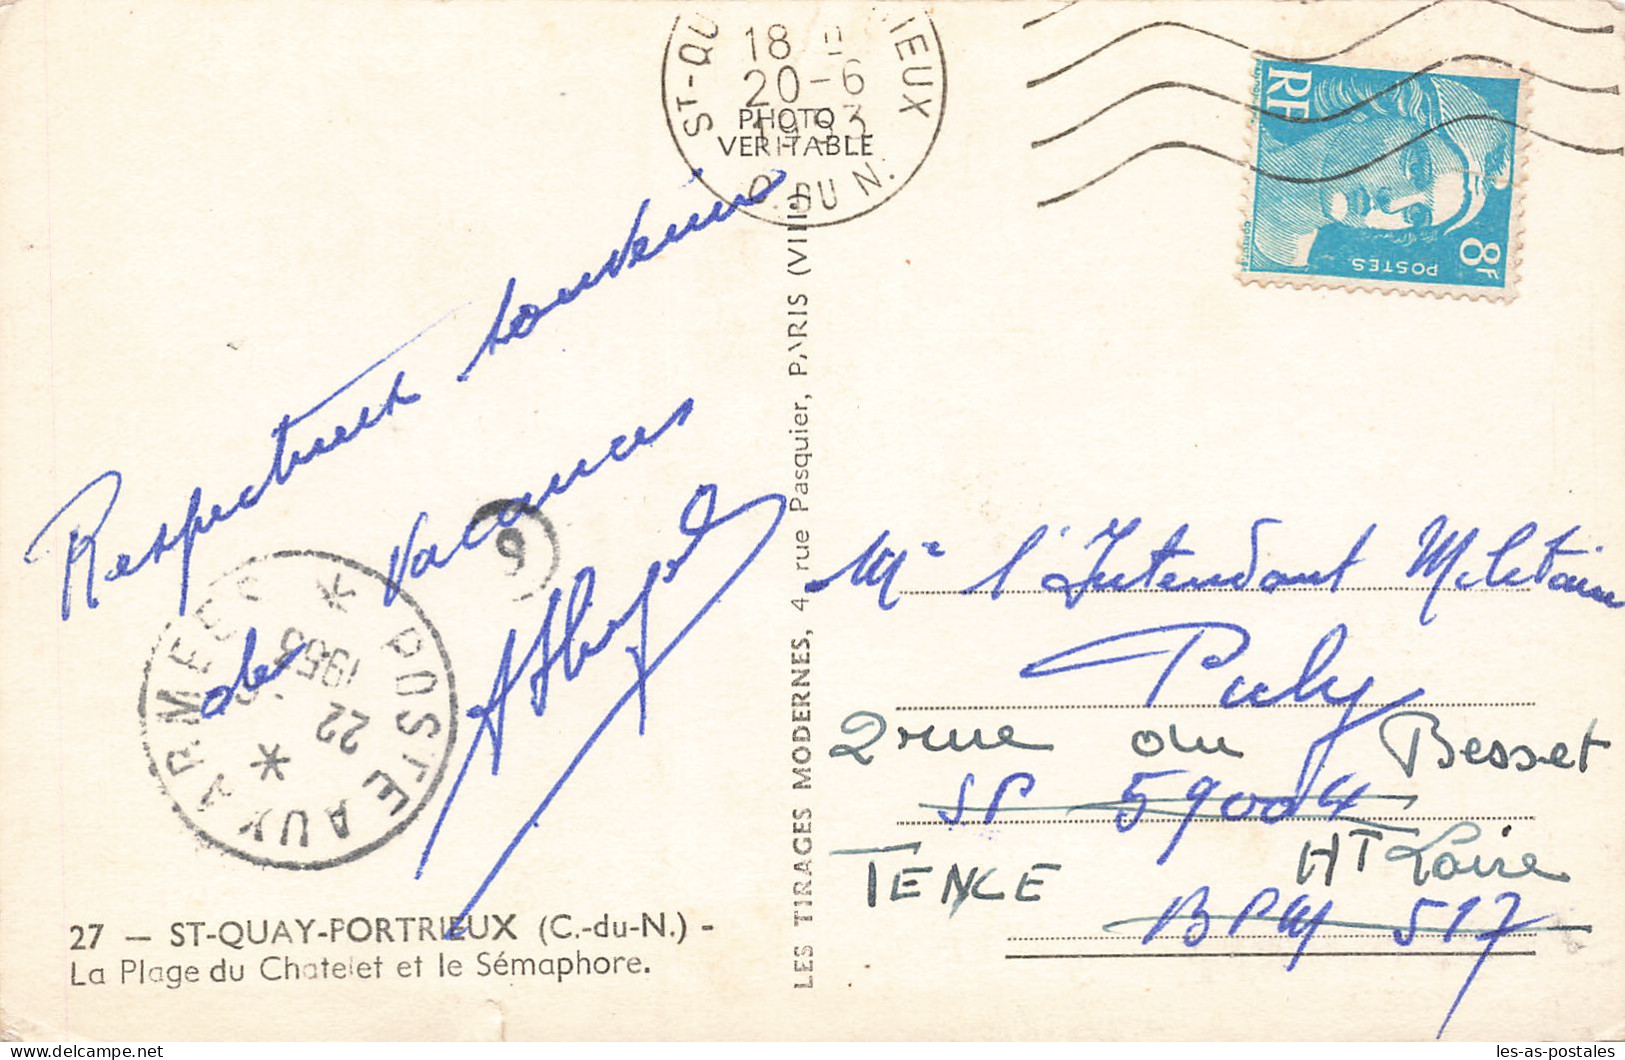 ST-QU IEUX
18
20-6
1953
C. DU N.
PHOTO
VERITABLE
RF
POSTES
8F
Respectueux souvenir
de vacances
6
POSTE AUX ARMEES
22
1953
Mr l'Intendant Militaire
2 rue du Besset
SP 59004
TENCE HT Loire
BPM 517
LES TIRAGES MODERNES, 4, rue Pasquier, PARIS (VIIIe)
27 — ST-QUAY-PORTRIEUX (C.-du-N.) -
La Plage du Chatelet et le Sémaphore.
les-as-postales